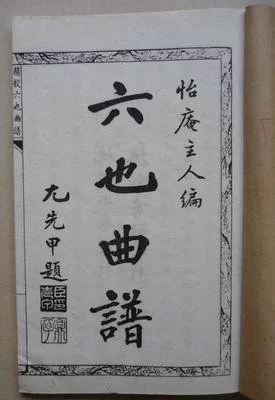 怡庵主人編
六也曲譜
尤先甲題
六也曲譜